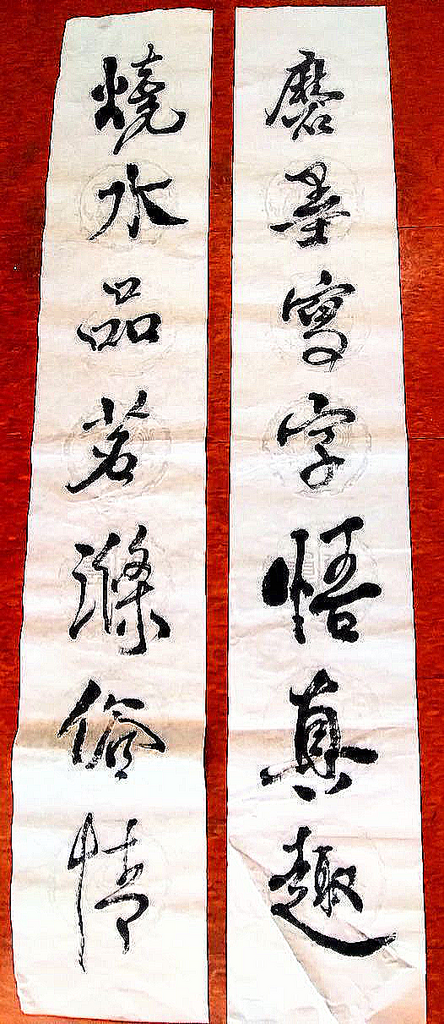 磨墨寫字悟真趣
燒水品茗滌俗情